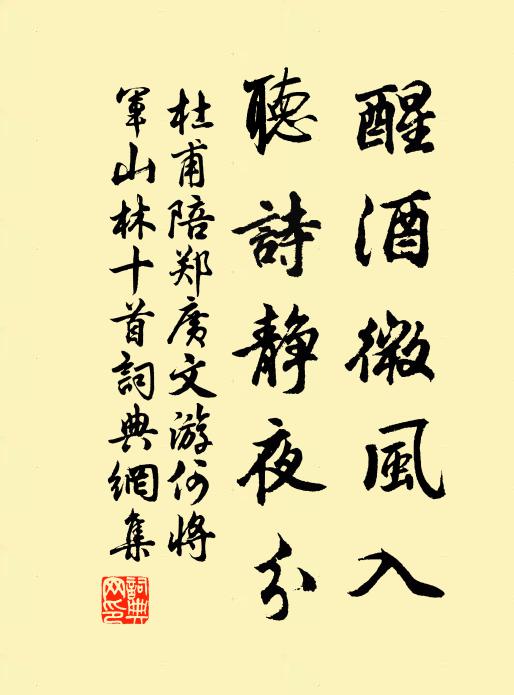 醒酒微風入
聽詩静夜分
杜甫陪郑廣文游何將
軍山林十首詞典網集
詞典網印